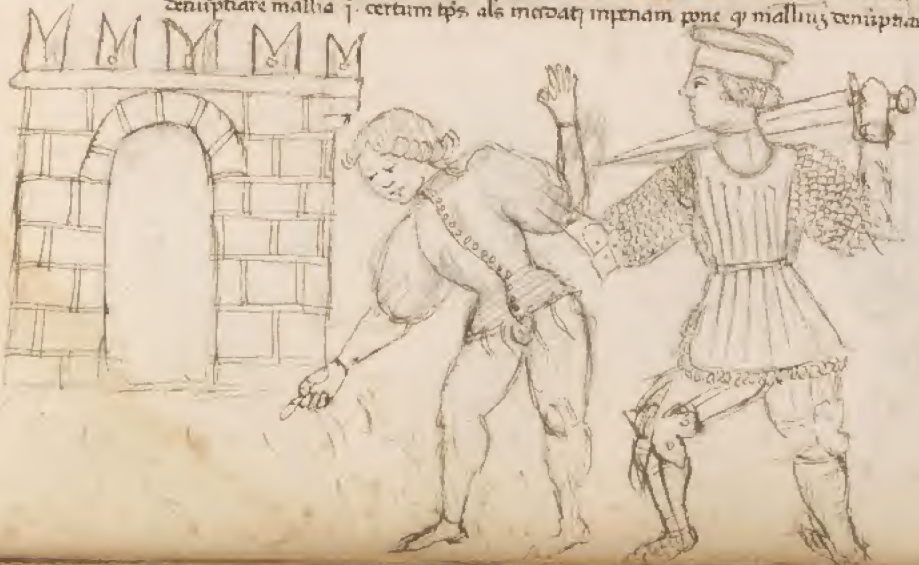 denūptiare mallia j. certum tp̄s. als incidatꝭ inpenam pone ꝙ malliuꝫ denūptiar